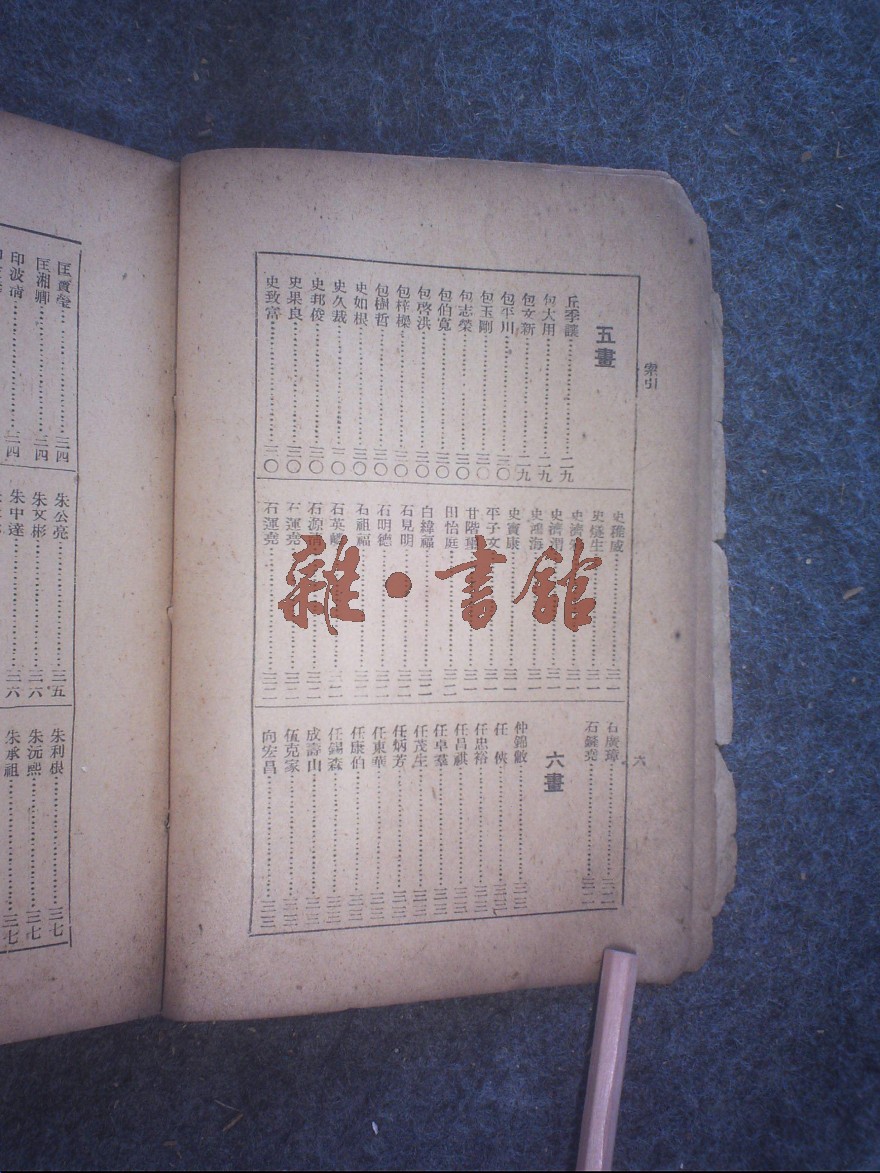 索引
五畫
丘季謙…二九
包大用…二九
包文新…二九
包平川…三〇
包玉剛…三〇
包志榮…三〇
包伯寬…三〇
包啓洪…三〇
包梓樑…三〇
包樹哲…三〇
史如根…三〇
史久裁…三〇
史邦俊…三〇
史果良…三〇
史致富…三〇
史雅威…三一
史燧生…三一
史濟…三一
史濟淵…三一
史鴻海…三一
史寶康…三一
平子文…三一
甘階…三一
田怡庭…三一
白緯福…三一
石見明…三一
石明德…三一
石祖福…三一
石英…三一
石源…三二
石運堯…三二
石運堯…三二
石廣璋…三二
石鏡堯…三二
六畫
仲錦敏…三三
任俠…三三
任忠裕…三三
任昌祺…三三
任卓羣…三三
任茂生…三三
任炳芳…三三
任東華…三三
任康伯…三三
任錫森…三三
成壽山…三三
伍克家…三三
向宏昌…三三
六
匡寶瑩…三四
匡湘卿…三四
印波清…三四
朱公亮…三五
朱文彬…三六
朱中達…三六
朱利根…三七
朱沅熙…三七
朱承祖…三七
雜·書館